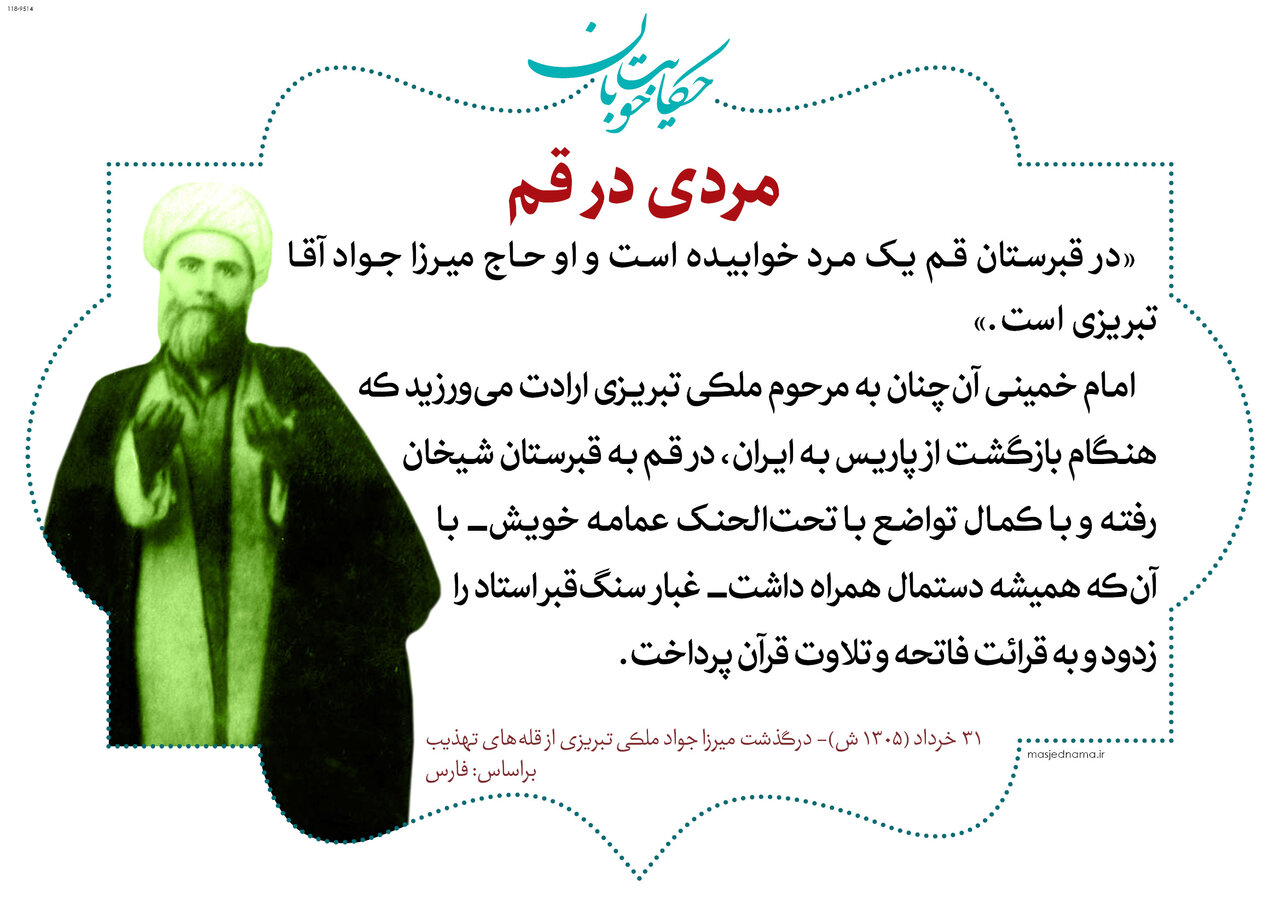 118-9514
حکایت خوبان
مردی در قم
«در قبرستان قم یک مرد خوابیده است و او حاج میرزا جواد آقا
تبریزی است.»
امام خمینی آن‌چنان به مرحوم ملکی تبریزی ارادت می‌ورزید که
هنگام بازگشت از پاریس به ایران، در قم به قبرستان شیخان
رفته و با کمال تواضع با تحت‌الحنک عمامه خویش_ با
آن‌که همیشه دستمال همراه داشت_ غبار سنگ‌قبر استاد را
زدود و به قرائت فاتحه و تلاوت قرآن پرداخت.
۳۱ خرداد (۱۳۰۵ ش)- درگذشت میرزا جواد ملکی تبریزی از قله‌های تهذیب
براساس: فارس
masjednama.ir